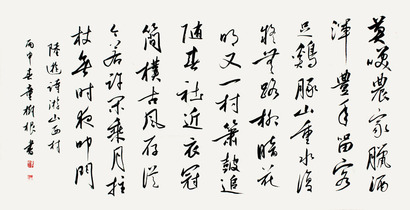 莫笑農家臘酒
渾豐年留客
足鷄豚山重水複
疑無路柳暗花
明又一村簫鼓追
隨春社近衣冠
簡樸古風存從
今若許閑乘月拄
杖無時夜叩門
陸游詩游山西村
丙申春童樹根書